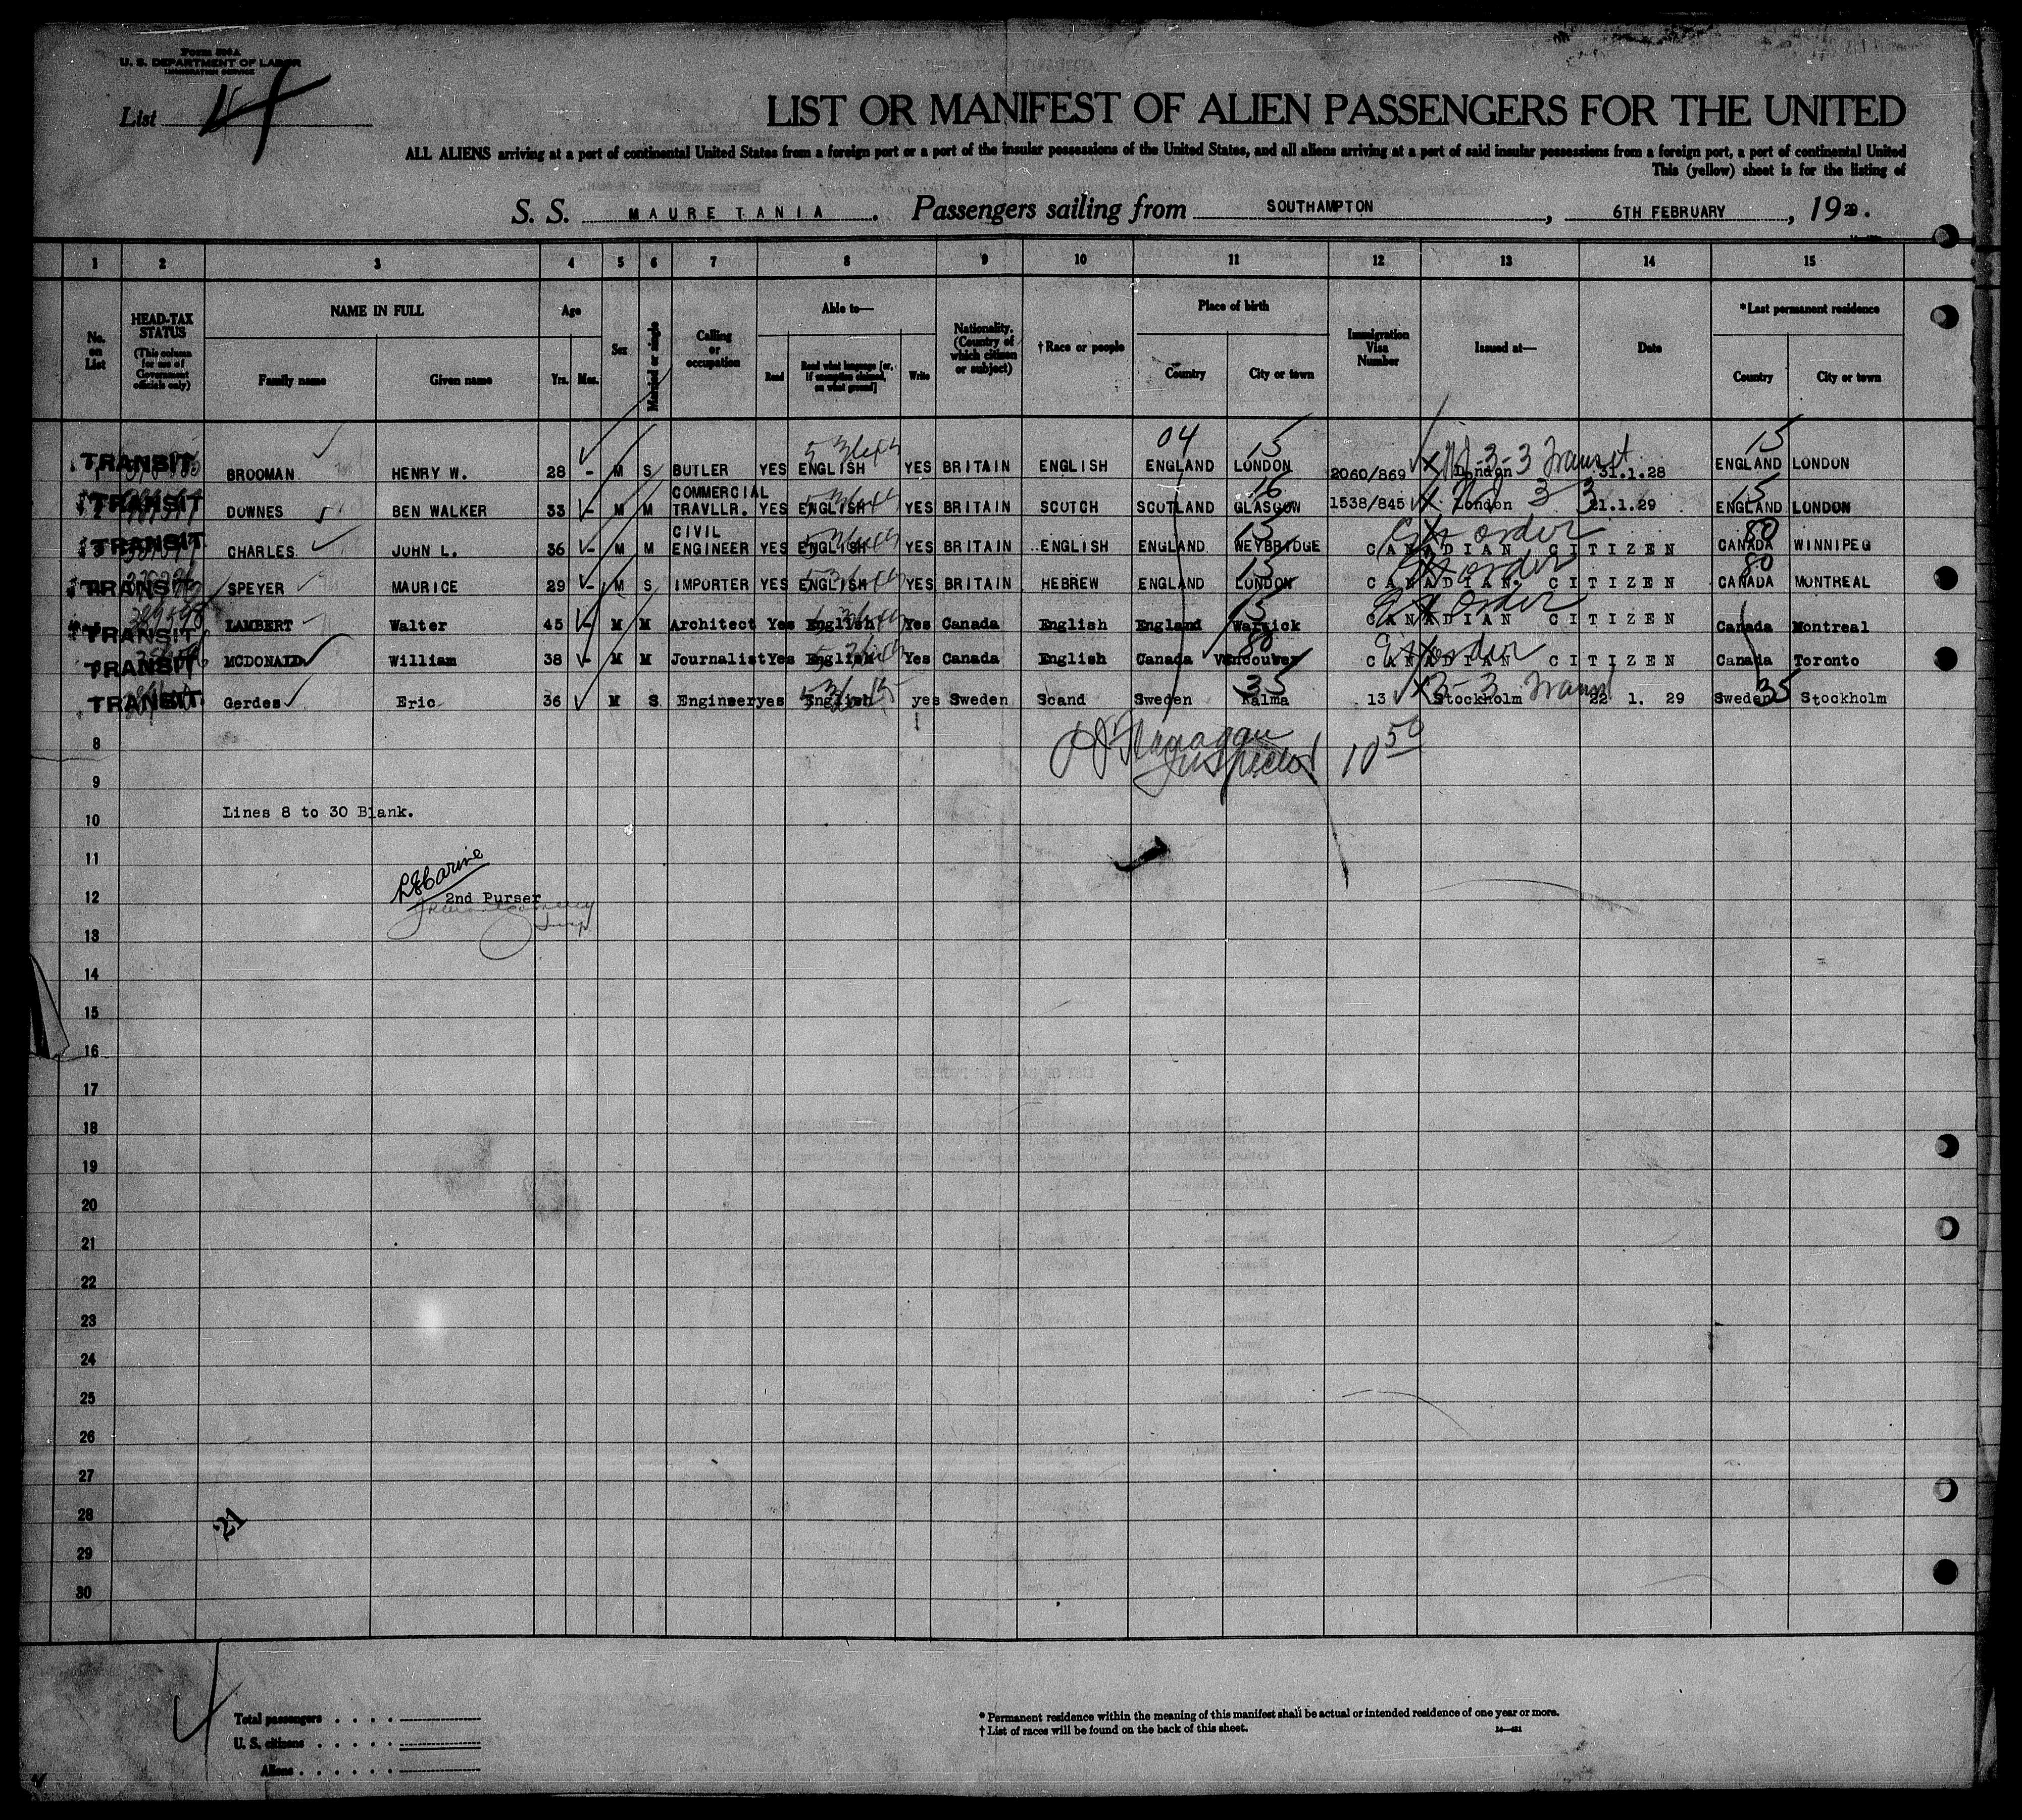 Form 500A
U. S. DEPARTMENT OF LABOR
IMMIGRATION SERVICE
List 4
LIST OR MANIFEST OF ALIEN PASSENGERS FOR THE UNITED
ALL ALIENS arriving at a port of continental United States from a foreign port or a port of the insular possessions of the United States, and all aliens arriving at a port of said insular possessions from a foreign port, a port of continental United
This (yellow) sheet is for the listing of
S. S. MAURETANIA. Passengers sailing from SOUTHAMPTON, 6TH FEBRUARY, 19
1 2 3 4 5 6 7 8 9 10 11 12 13 14 15
No. on List
HEAD-TAX STATUS (This column for use of Government officials only)
NAME IN FULL
Family name Given name
Age
Yrs. Mos.
Sex
Married or single
Calling or occupation
Able to—
Read Read what language [or, if exemption claimed, on what ground] Write
Nationality. (Country of which citizen or subject)
†Race or people
Place of birth
Country City or town
Immigration Visa Number
Issued at—
Date
*Last permanent residence
Country City or town
04 15 15
TRANSIT BROOMAN HENRY W. 28 - M S BUTLER YES ENGLISH YES BRITAIN ENGLISH ENGLAND LONDON 2060/869 London 3-3 Transit 31.1.28 ENGLAND LONDON
16 15
TRANSIT DOWNES BEN WALKER 33 - M M COMMERCIAL TRAVLLR. YES ENGLISH YES BRITAIN SCOTCH SCOTLAND GLASGOW 1538/845 London 3 3 21.1.29 ENGLAND LONDON
15 80
TRANSIT CHARLES JOHN L. 36 - M M CIVIL ENGINEER YES ENGLISH YES BRITAIN ENGLISH ENGLAND WEYBRIDGE CANADIAN CITIZEN Ex order CANADA WINNIPEG
15 80
TRANSIT SPEYER MAURICE 29 - M S IMPORTER YES ENGLISH YES BRITAIN HEBREW ENGLAND LONDON CANADIAN. CITIZEN Ex order CANADA MONTREAL
15
TRANSIT LAMBERT Walter 45 - M M Architect Yes English Yes Canada English England Warwick CANADIAN CITIZEN Ex order Canada Montreal
80
TRANSIT MCDONALD William 38 - M M Journalist Yes English Yes Canada English Canada Vancouver CANADIAN CITIZEN Ex order Canada Toronto
35 35
TRANSIT Gerdes Eric 36 M S Engineer yes English yes Sweden Scand Sweden Kalma 13 Stockholm 3-3 Transit 22 1. 29 Sweden Stockholm
8
Inspector 10 50
9
Lines 8 to 30 Blank.
10
11
12
2nd Purser
Insp
13
14
15
16
17
18
19
20
21
22
23
24
25
26
27
28
21
29
30
Total passengers
U. S. citizens
Aliens
* Permanent residence within the meaning of this manifest shall be actual or intended residence of one year or more.
† List of races will be found on the back of this sheet.